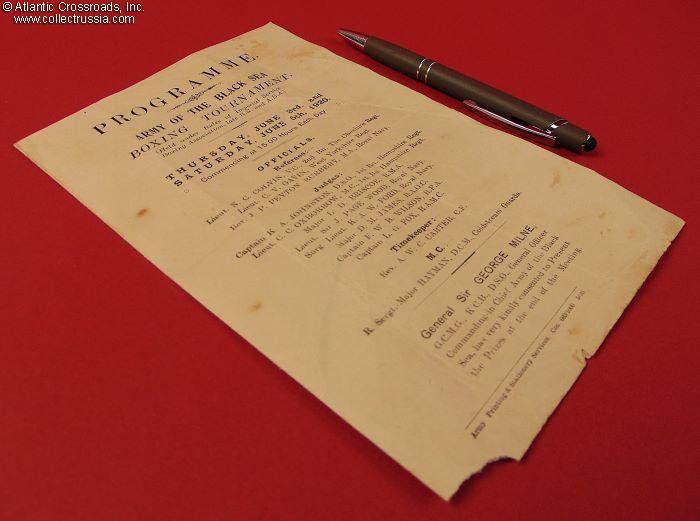 © Atlantic Crossroads, Inc.
www.collectrussia.com
PROGRAMME.
ARMY OF THE BLACK SEA
BOXING TOURNAMENT.
(Held under Rules of Imperial Service
Boxing Association, late and A.B.A.)
THURSDAY, JUNE 3rd, and
SATURDAY, JUNE 5th, 1920.
Commencing at 15.00 Hours Each Day
OFFICIALS.
Referees:
Lieut. N. C. COLVIN, V.C., 2nd Bn. The Cheshire Regt.
Lieut. C. V. GAVIN, West Yorkshire Regt.
Rev. J. P. PEYTON HERBERT, M.A., Royal Navy.
Judges:
Captain K. A. JOHNSTON, D.S.O., 1st Bn. Hampshire Regt.
Lieut. C. C. OXBORROW, M.C., 1st Bn. Hampshire Regt.
Major L. D. BRISCOE, R.M.A.
Lieut. Sir J. PAGE WOOD, Royal Navy.
Surg. Lieut. K. A. W. FORD, Royal Navy.
Major D. M. JAMES, R.I.O.C.
Captain F. W. B. WILSON, R.F.A.
Captain L. G. FOX, R.A.M.C.
Timekeeper:
Rev. A. W. C. CARTER, C.F.
M.C.
R. Sergt.-Major HAYMAN, D.C.M. Coldstream Guards.
General Sir GEORGE MILNE,
G.C.M.G., K.C.B., D.S.O., General Officer
Commanding-in-Chief Army of the Black
Sea, has very kindly consented to Present
the Prizes at the end of the Meeting.
Army Printing & Stationery Services, Con.